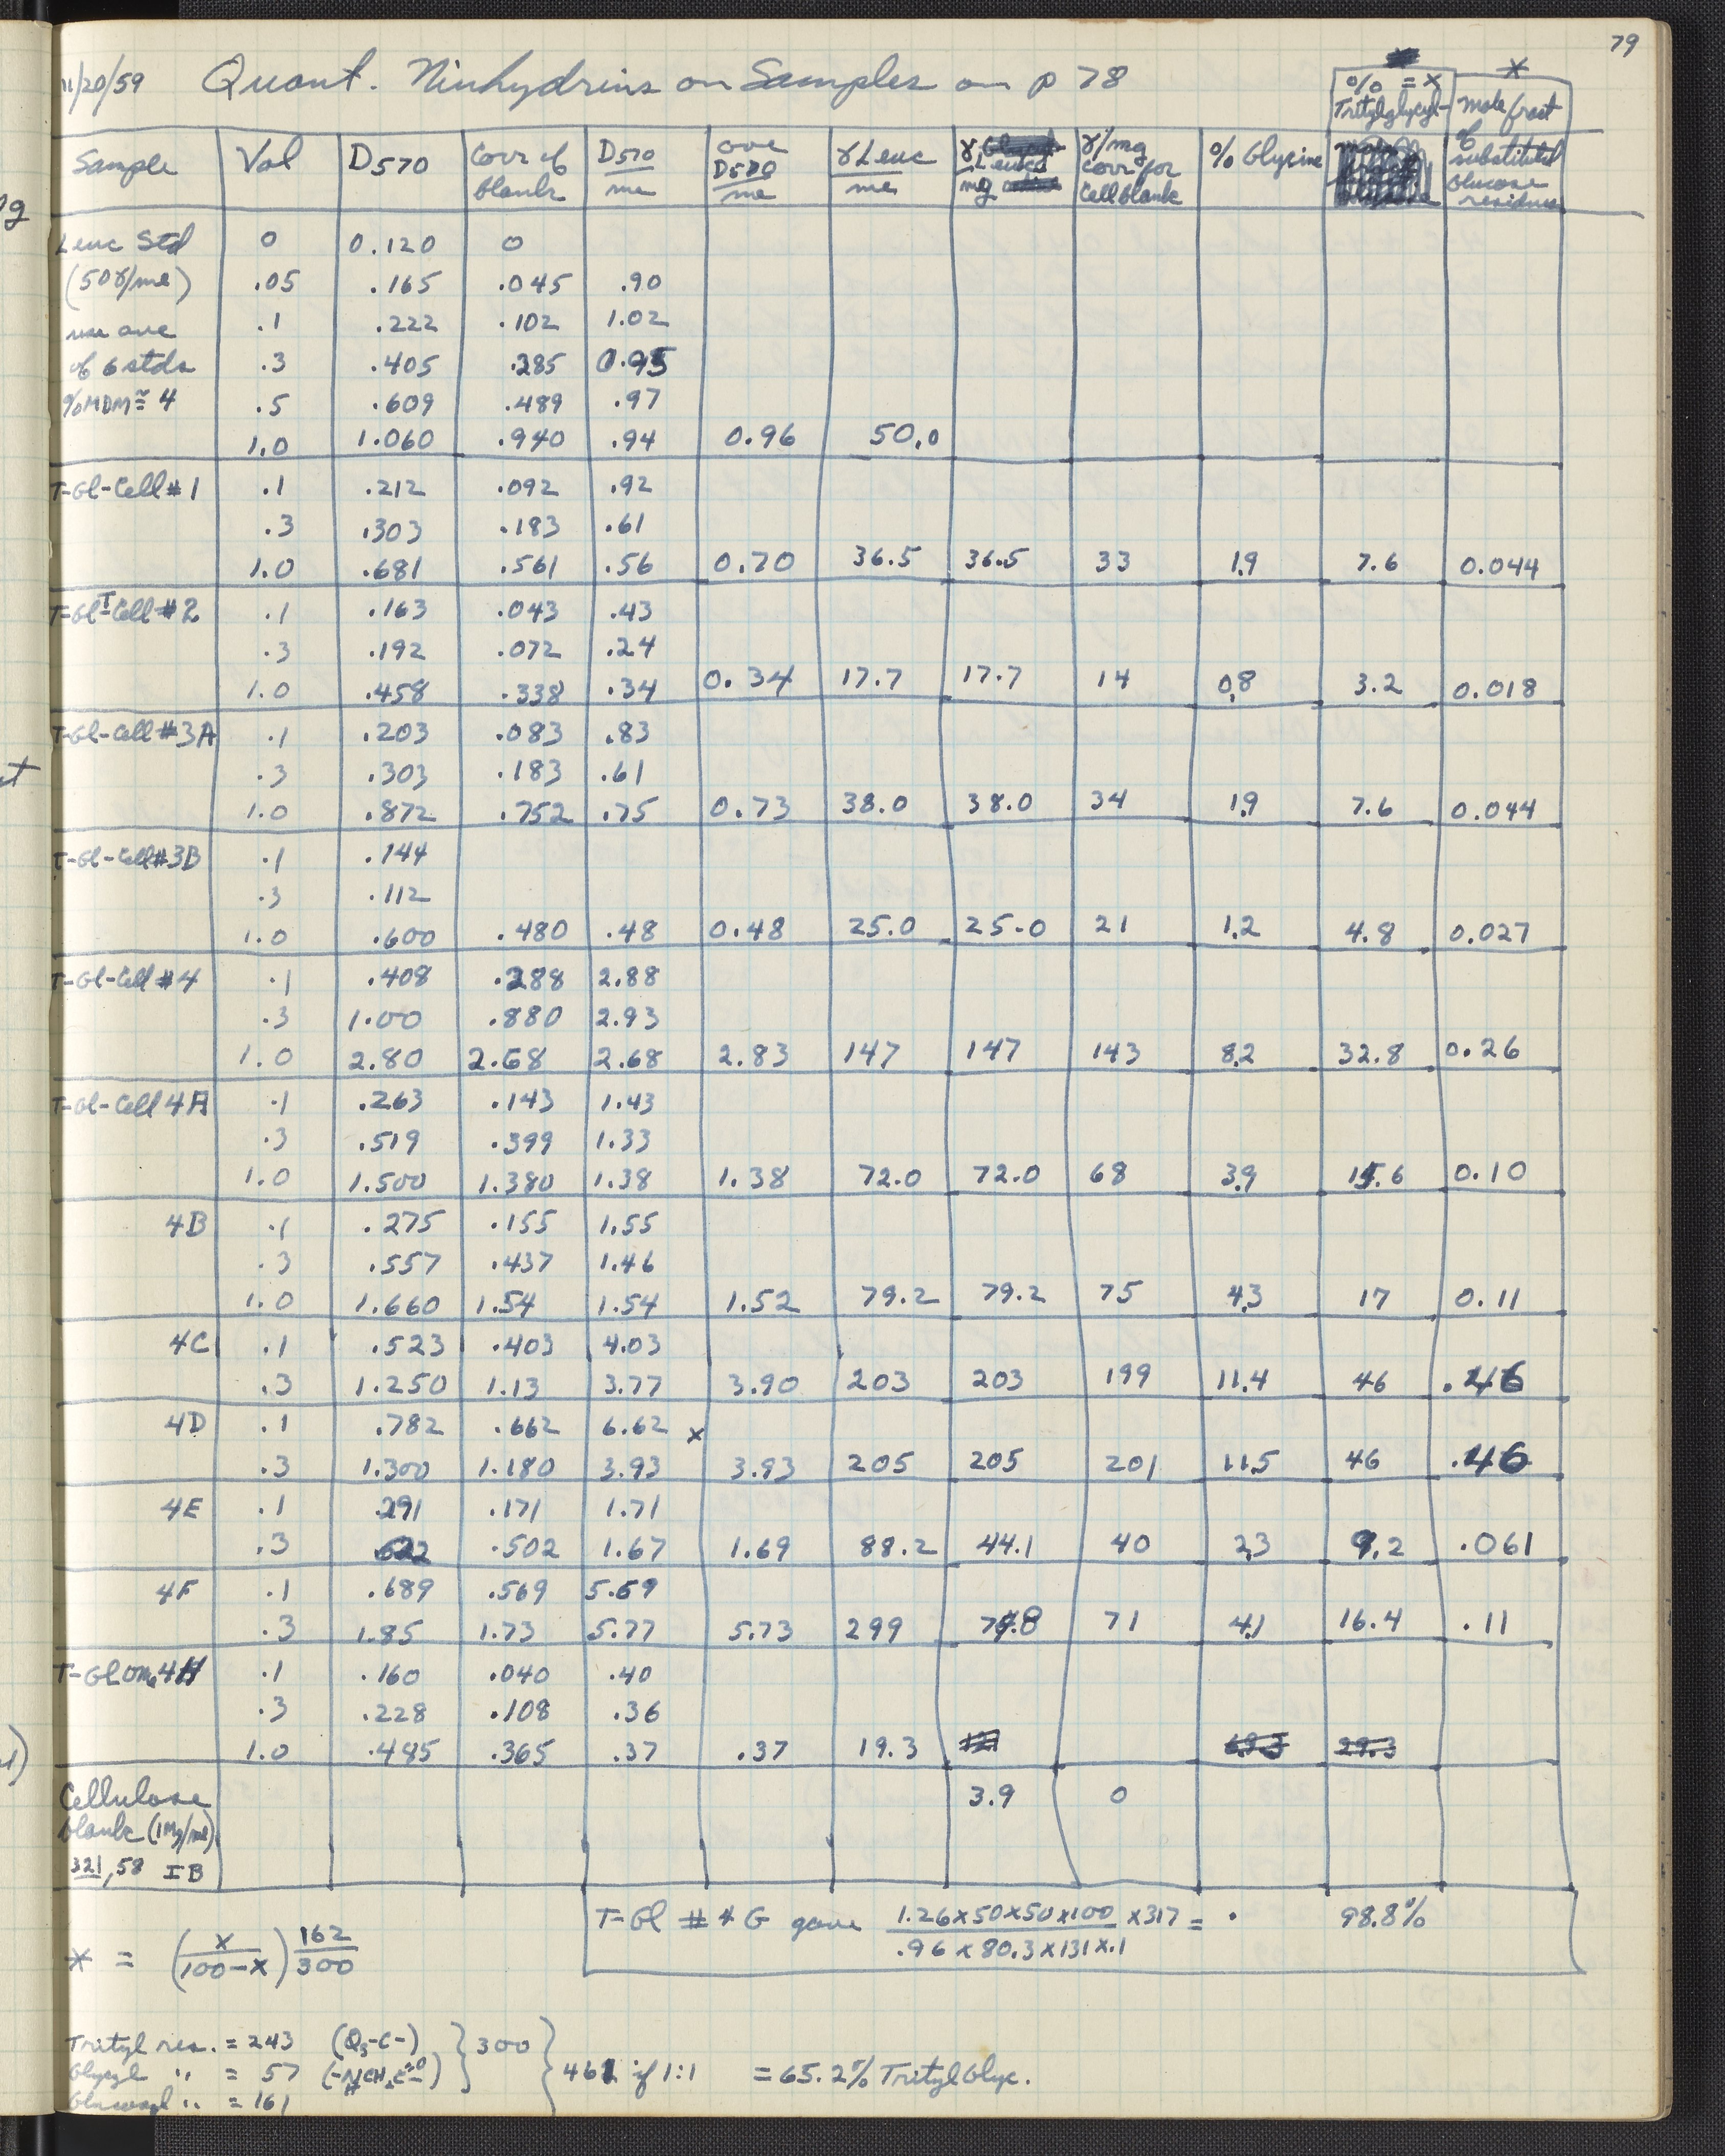 79
11/20/59 Quant. Ninhydrins on Samples on p 78
% = x Tritylglycyl- * mole fract of substituted Glucose residues
Sample Vol D570 Corr of blank D570/ml ave D570/ml γ Leuc/ml γ Leuc/mg γ/mg corr for Cell blank % Glycine
Leuc Std 0 0.120 0
(50γ/ml) .05 .165 .045 .90
use ave .1 .222 .102 1.02
of 6 stds .3 .405 .285 0.95
%MDM ≅ 4 .5 .609 .489 .97
1.0 1.060 .940 .94 0.96 50.0
T-Gl-Cell #1 .1 .212 .092 .92
.3 .303 .183 .61
1.0 .681 .561 .56 0.70 36.5 36.5 33 1.9 7.6 0.044
T-Gl-T-Cell #2 .1 .163 .043 .43
.3 .192 .072 .24
1.0 .458 .338 .34 0.34 17.7 17.7 14 0.8 3.2 0.018
T-Gl-Cell #3A .1 .203 .083 .83
.3 .303 .183 .61
1.0 .872 .752 .75 0.73 38.0 38.0 34 1.9 7.6 0.044
T-Gl-Cell #3B .1 .144
.3 .112
1.0 .600 .480 .48 0.48 25.0 25.0 21 1.2 4.8 0.027
T-Gl-Cell #4 .1 .408 .288 2.88
.3 1.00 .880 2.93
1.0 2.80 2.68 2.68 2.83 147 147 143 8.2 32.8 0.26
T-Gl-Cell 4A .1 .263 .143 1.43
.3 .519 .399 1.33
1.0 1.500 1.380 1.38 1.38 72.0 72.0 68 3.9 15.6 0.10
4B .1 .275 .155 1.55
.3 .557 .437 1.46
1.0 1.660 1.54 1.54 1.52 79.2 79.2 75 4.3 17 0.11
4C .1 .523 .403 4.03
.3 1.250 1.13 3.77 3.90 203 203 199 11.4 46 .46
4D .1 .782 .662 6.62 x
.3 1.300 1.180 3.93 3.93 205 205 201 11.5 46 .46
4E .1 .291 .171 1.71
.3 .622 .502 1.67 1.69 88.2 44.1 40 2.3 9.2 .061
4F .1 .689 .569 5.69
.3 1.85 1.73 5.77 5.73 299 74.8 71 4.1 16.4 .11
T-Gl OMe 4H .1 .160 .040 .40
.3 .228 .108 .36
1.0 .485 .365 .37 .37 19.3
Cellulose 3.9 0
blank (1mg/ml)
321,58 IB
T-Gl #4G gave 1.26x50x50x100/.96x80.3x131x.1 x317 = . 98.8%
* = (x/100-x) 162/300
Trityl res. = 243 (Q3-C-) } 300
Glycyl " = 57 (-NHCH2C=O-) } 461 if 1:1 = 65.2% TritylGlyc.
Glucosyl " = 161